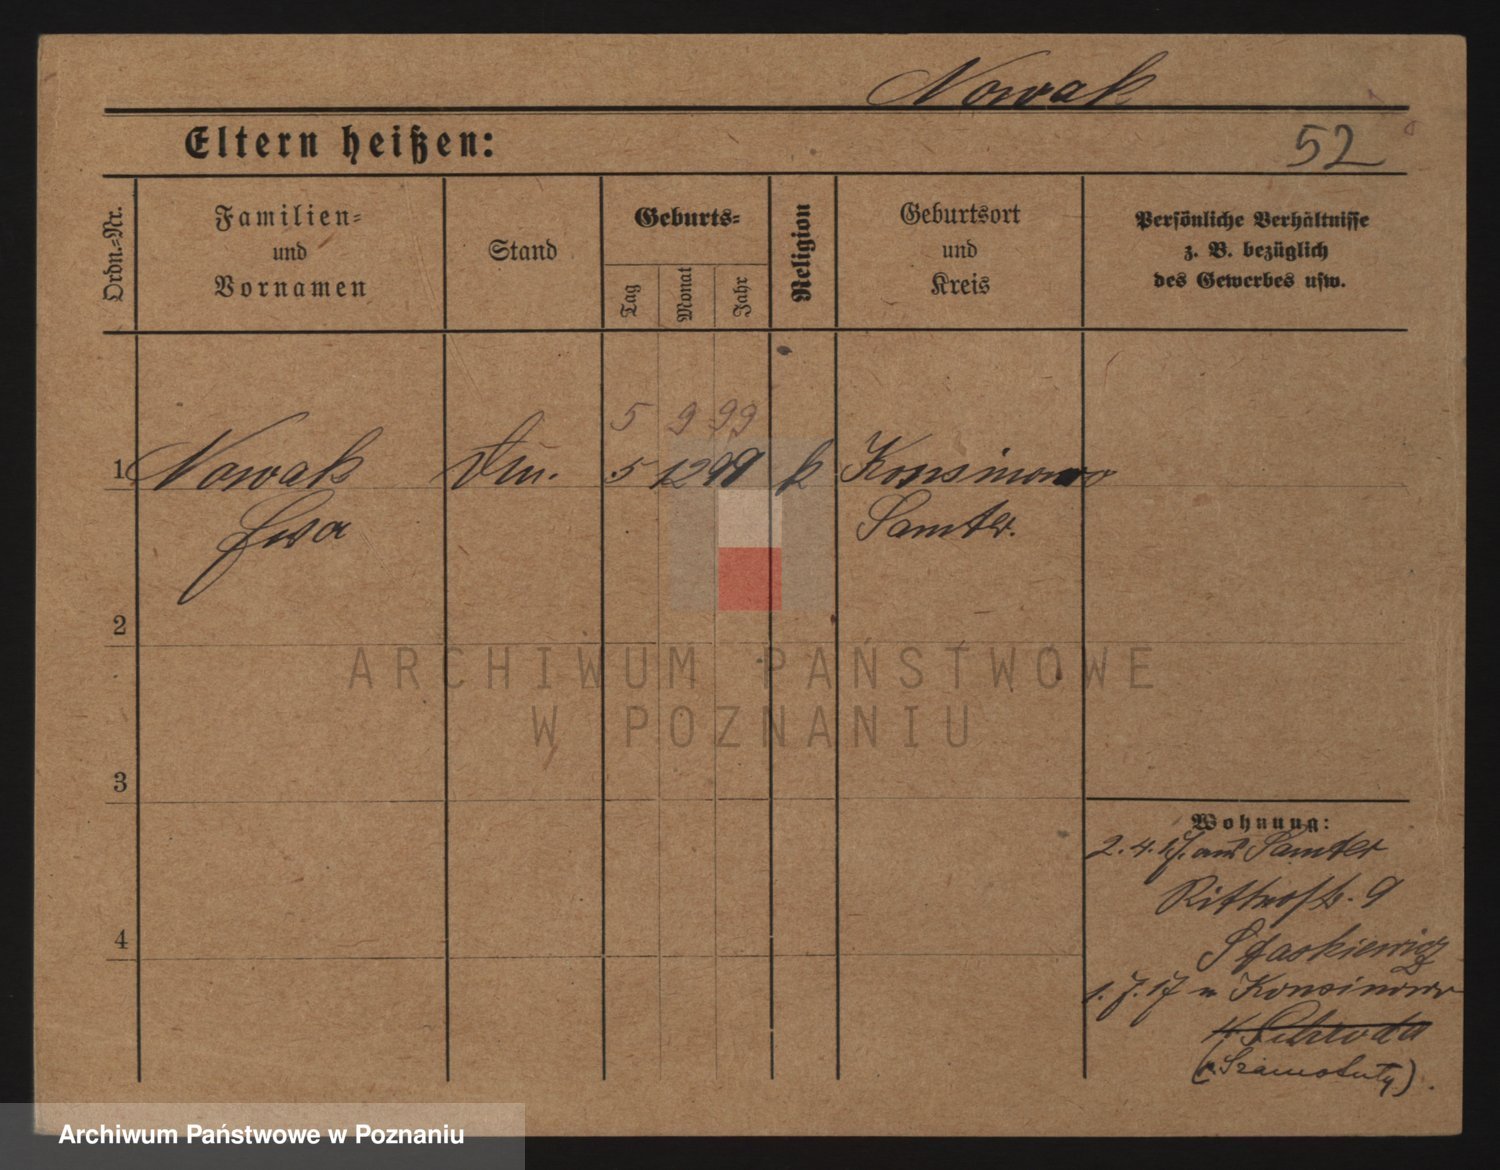 Nowak
Eltern heißen:
52
Ordn.-Nr.
Familien-
und
Vornamen
Stand
Geburts-
Tag
Monat
Jahr
Religion
Geburtsort
und
Kreis
Persönliche Verhältnisse
z. B. bezüglich
des Gewerbes usw.
5 9 99
1 Nowak 5 12 99 k Konsinowo
Ewa Samter.
2
ARCHIWUM PAŃSTWOWE
W POZNANIU
3
Wohnung:
2.4.17. aus Samter
Ritterstr. 9
4
1.7.17 n Konsinowo
K. Schroda
(Szamotuły).
Archiwum Państwowe w Poznaniu